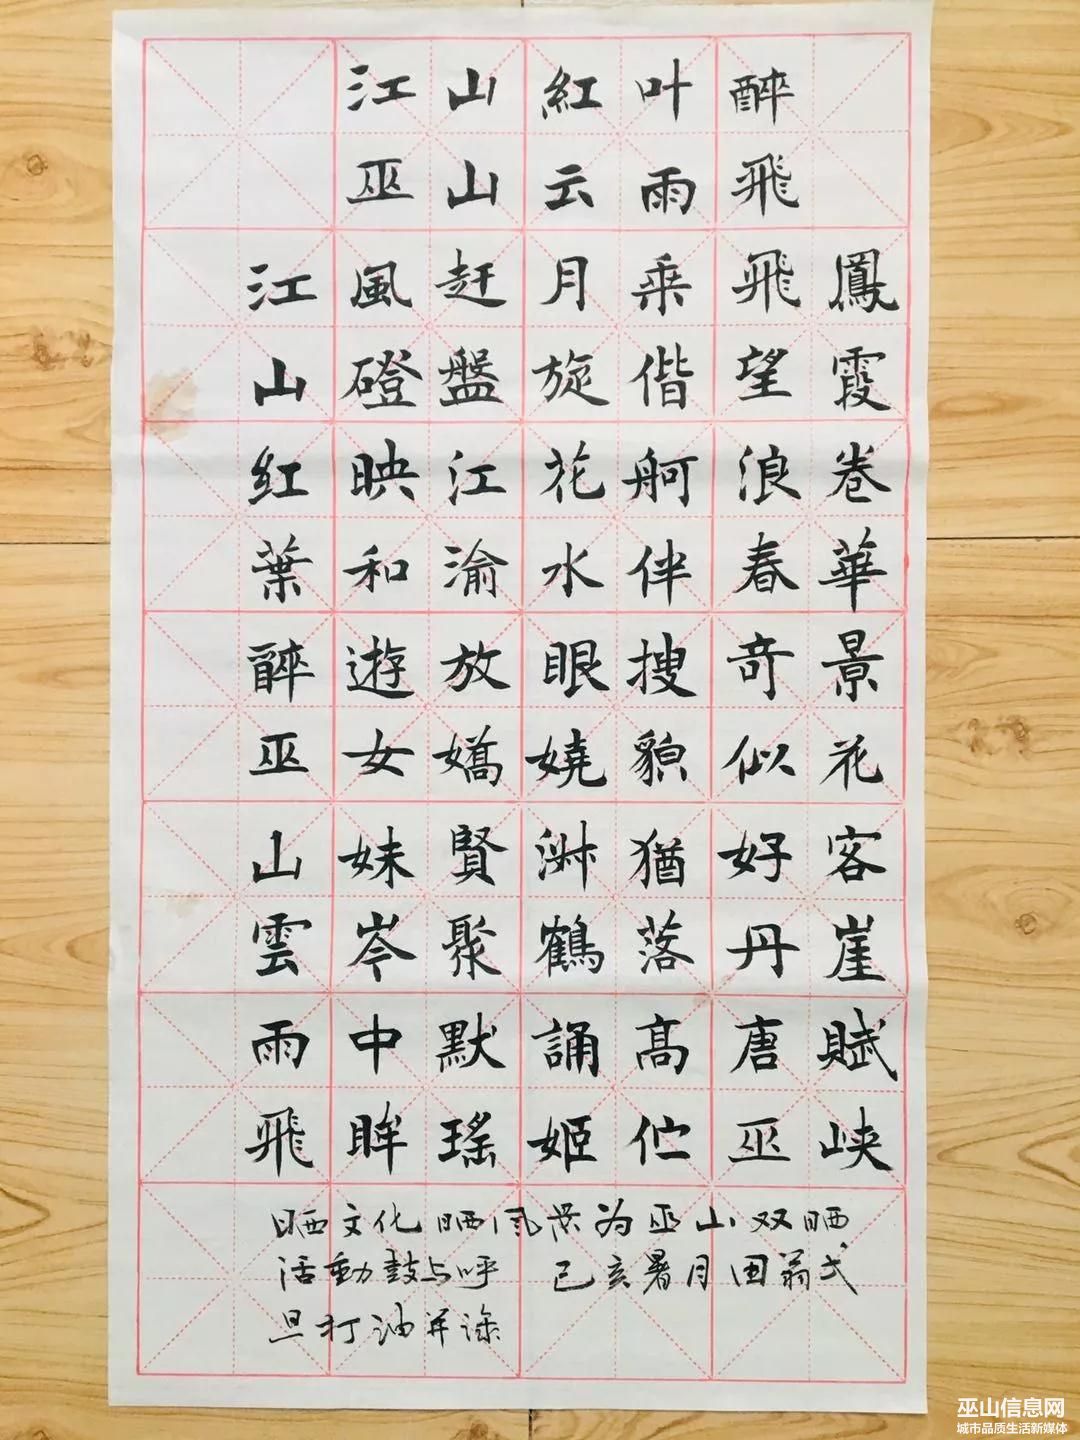 江山紅叶醉
巫山云雨飛
江風赶月乘飛鳳
山磴盤旋偕望霞
红映江花舸浪卷
葉和渝水伴春華
醉遊放眼搜奇景
巫女嬌嬈貌似花
山妹賢淑猶好客
雲岑聚鶴落丹崖
雨中默誦高唐賦
飛眸瑤姬伫巫峡
晒文化晒风景为巫山双晒
活動鼓与呼 己亥暑月田翁弍
旦打油并录
巫山信息网
城市品质生活新媒体